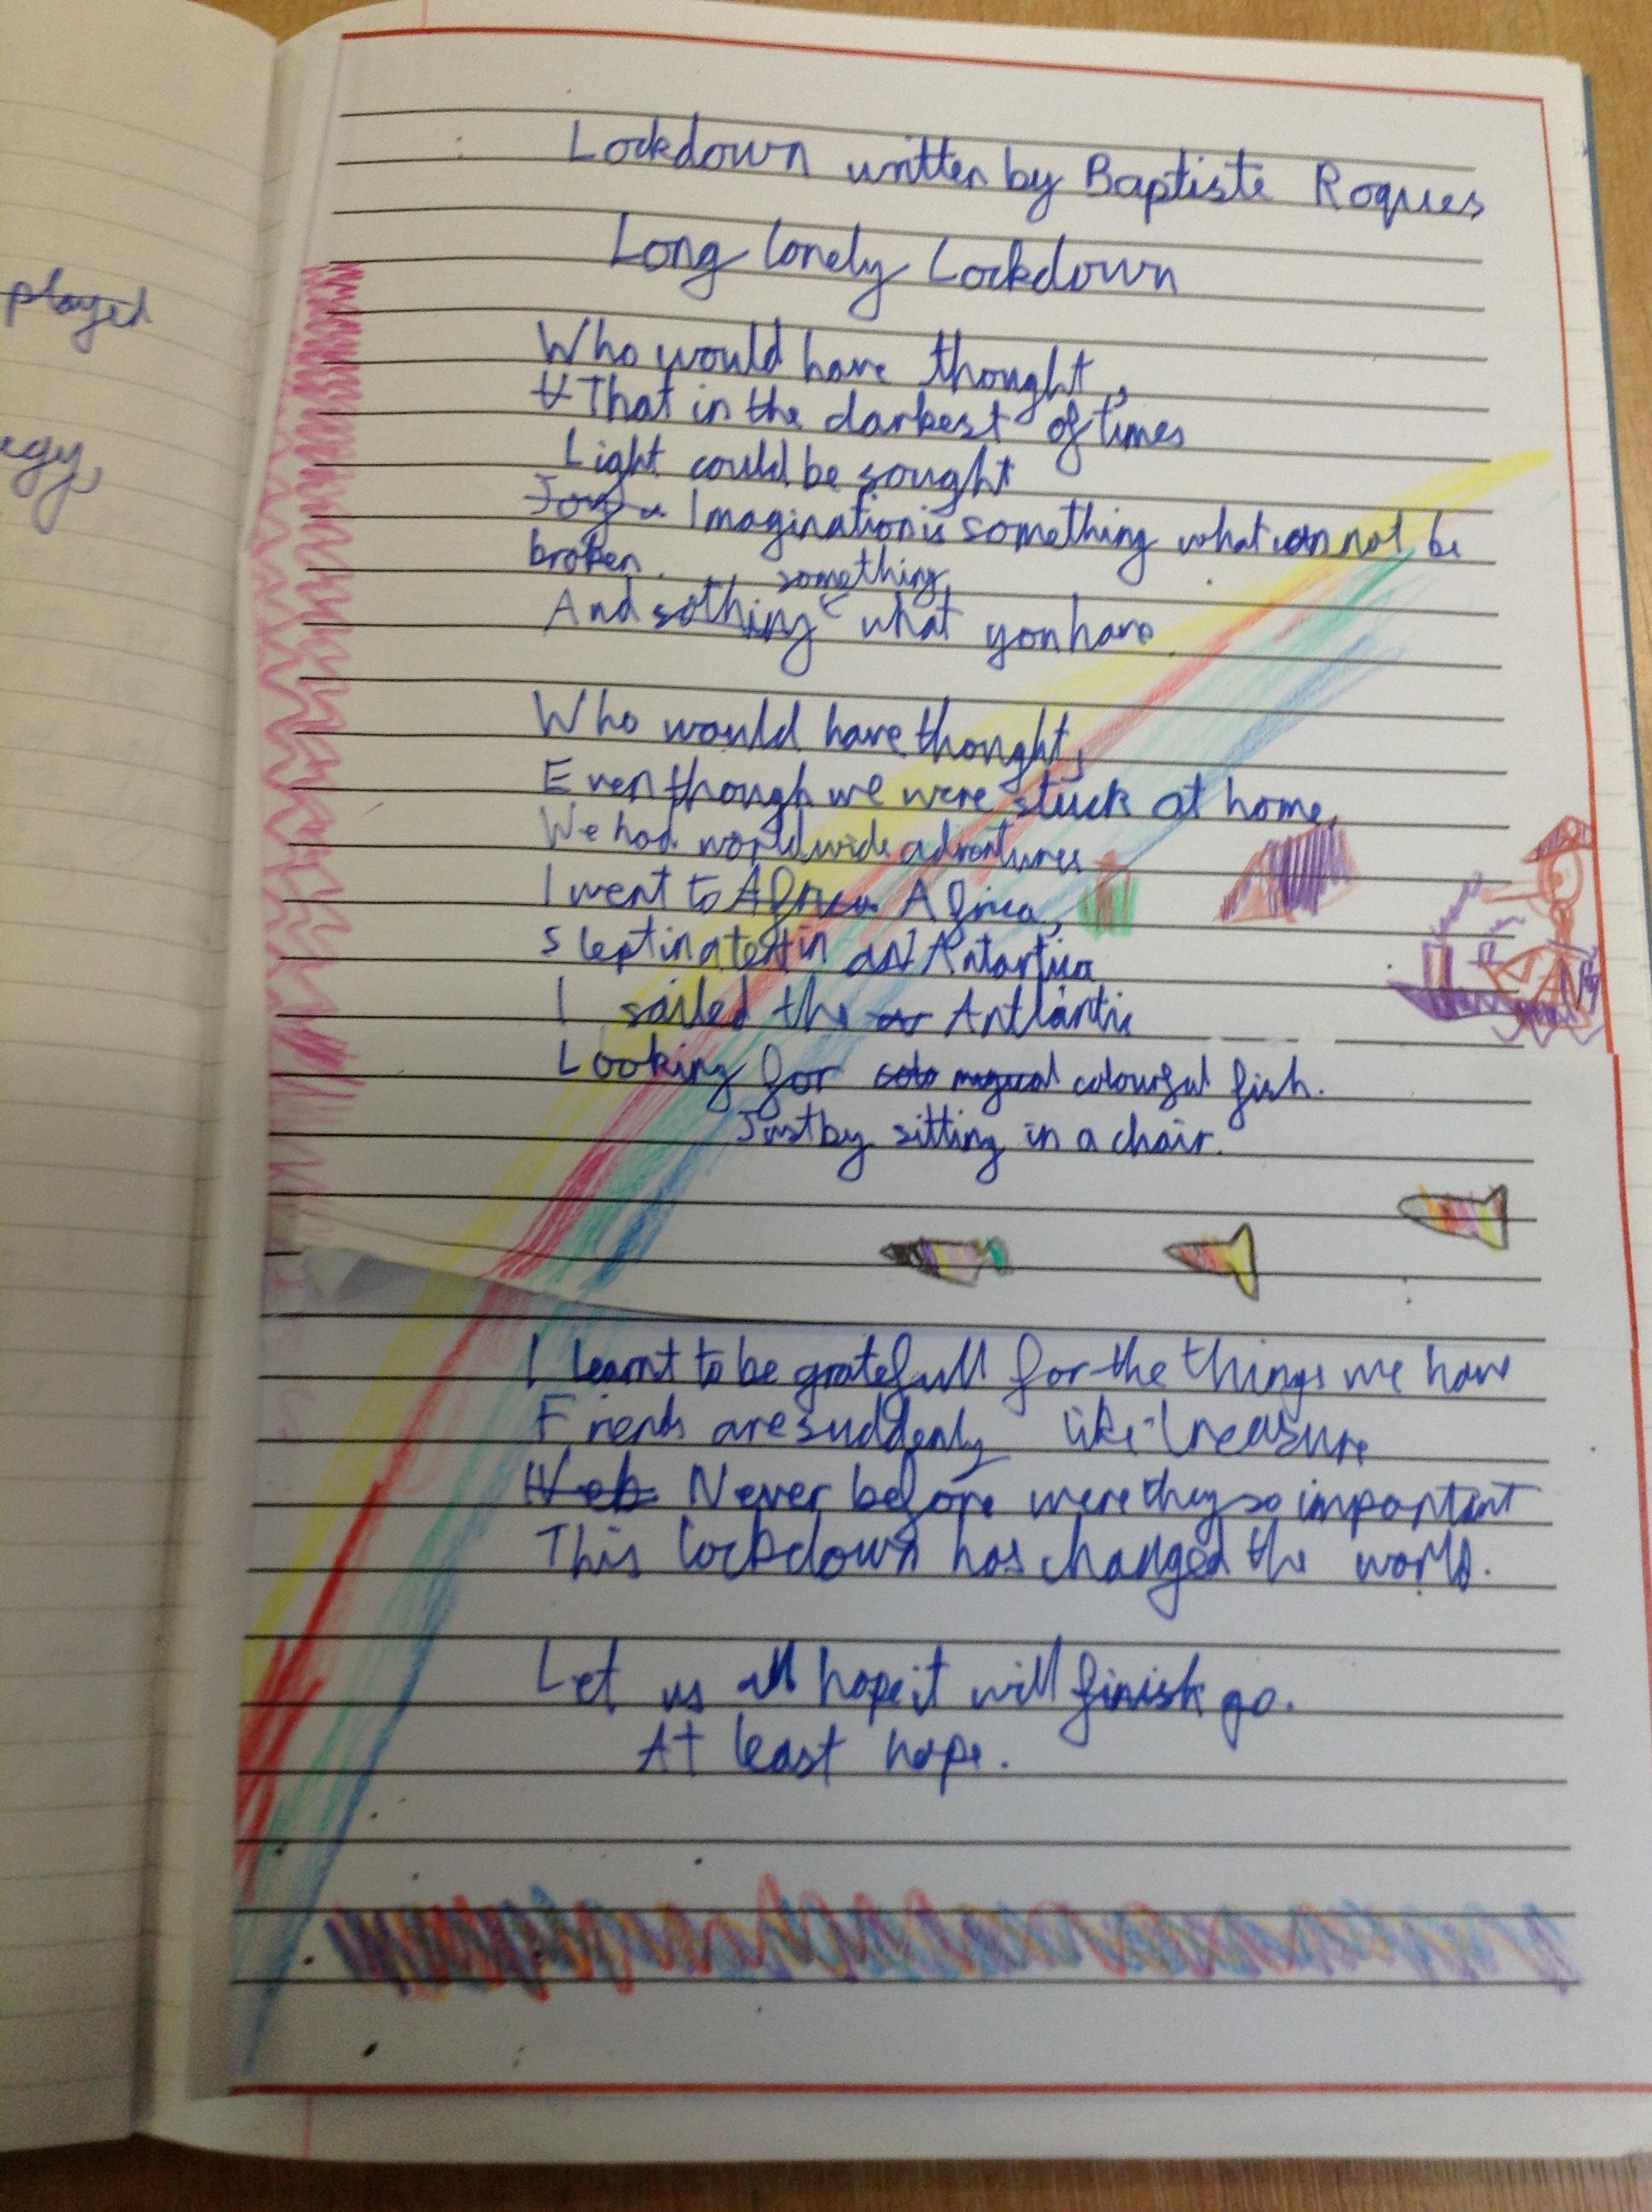 played
egy,
Lockdown written by Baptiste Roques
Long lonely Lockdown
Who would have thought,
That in the darkest of times
Light could be sought
Imagination is something what can not be
broken.
something
And sothing what you have
Who would have thought,
Even though we were stuck at home,
We had worldwide adventures
I went to Africa Africa,
Slept in a tent in Antartica
I sailed the Antlantic
Looking for magical colourful fish.
Just by sitting in a chair.
I learnt to be gratefull for the things we have
Friends are suddenly like treasure
Never before were they so important
This lockdown has changed the world.
Let us all hope it will finish go.
At least hope.